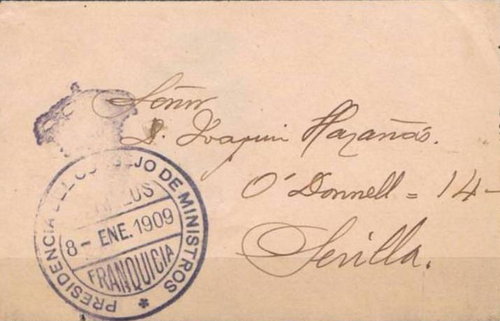 Señor
D. Joaquin Hazañas.
O'Donnell = 14-
Sevilla.
PRESIDENCIA DEL CONSEJO DE MINISTROS
8 - ENE. 1909
FRANQUICIA